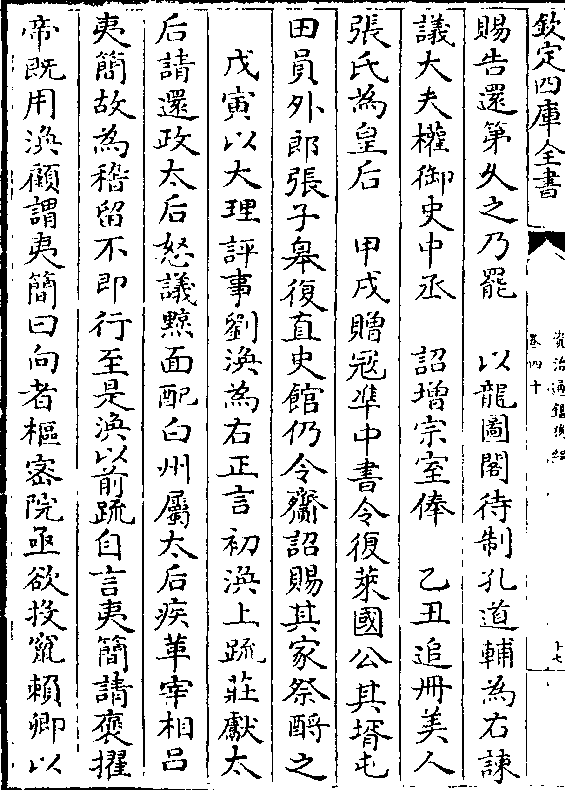 欽定四庫全書
資治通鑑後編
卷四十
十七
賜告還第久之乃罷　以龍圖閣待制孔道輔為右諫
議大夫權御史中丞　詔增宗室俸　乙丑追冊美人
張氏為皇后　甲戌贈冦凖中書令復萊國公其壻屯
田員外郎張子臯復直史館仍令齎詔賜其家祭酹之
戊寅以大理評事劉渙為右正言初渙上疏莊獻太
后請還政太后怒議黥面配白州屬太后疾革宰相吕
夷簡故為稽留不即行至是渙以前疏自言夷簡請褒擢
帝既用渙顧謂夷簡曰向者樞密院亟欲投竄賴卿以